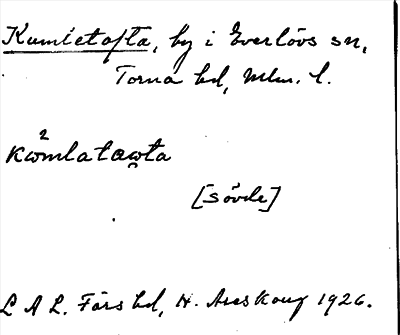 Kumletofta, by i Everlövs sn,
Torna hd, Mlm. l.
kω²mlataω̥ta
[Sövde]
L A L. Färs hd, H. Areskoug 1926.